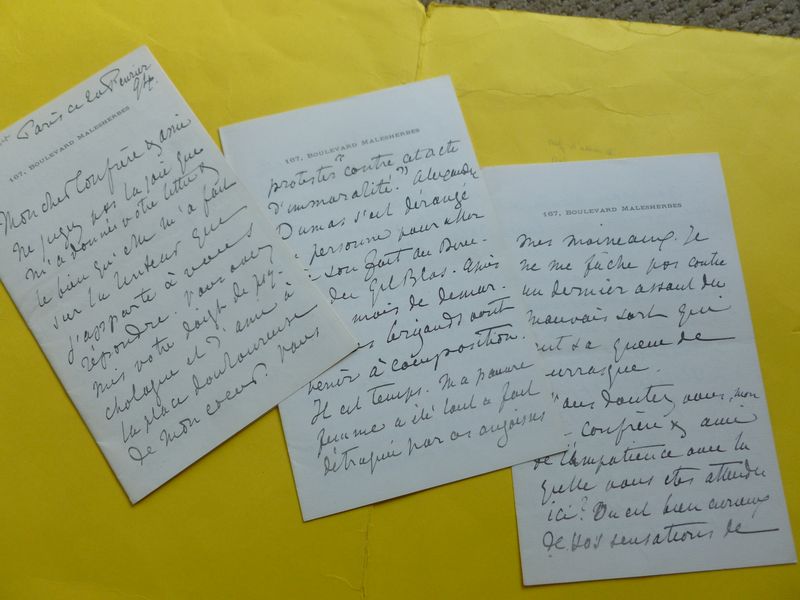 Paris ce 22 Février
94.
167, BOULEVARD MALESHERBES
Mon cher Confrère & ami
ne jugez pas la joie que
m'a donnée votre lettre &
le bien qu'elle m'a fait
sur la lenteur que
j'apporte à vous
répondre. Vous avez
mis votre doigt de psy-
chologue et d'ami à
la place douloureuse
de mon coeur. Vous
167, BOULEVARD MALESHERBES
protester "contre cet acte
d'immoralité." Alexandre
Dumas s'est dérangé
personne pour aller
son fait au Bureau
du Gil Blas. Après
mois de démar.
brigands vont
venir à composition.
Il est temps. Ma pauvre
femme a été tout à fait
détraquée par ces angoisses
167, BOULEVARD MALESHERBES
mes moineaux. Je
ne me fâche pas contre
un dernier assaut du
mauvais sort qui
est sa queue de
bourrasque.
Vous doutez vous, mon
confrère & ami
de l'impatience avec la
quelle vous etes attendu
ici? On est bien curieux
de vos sensations de